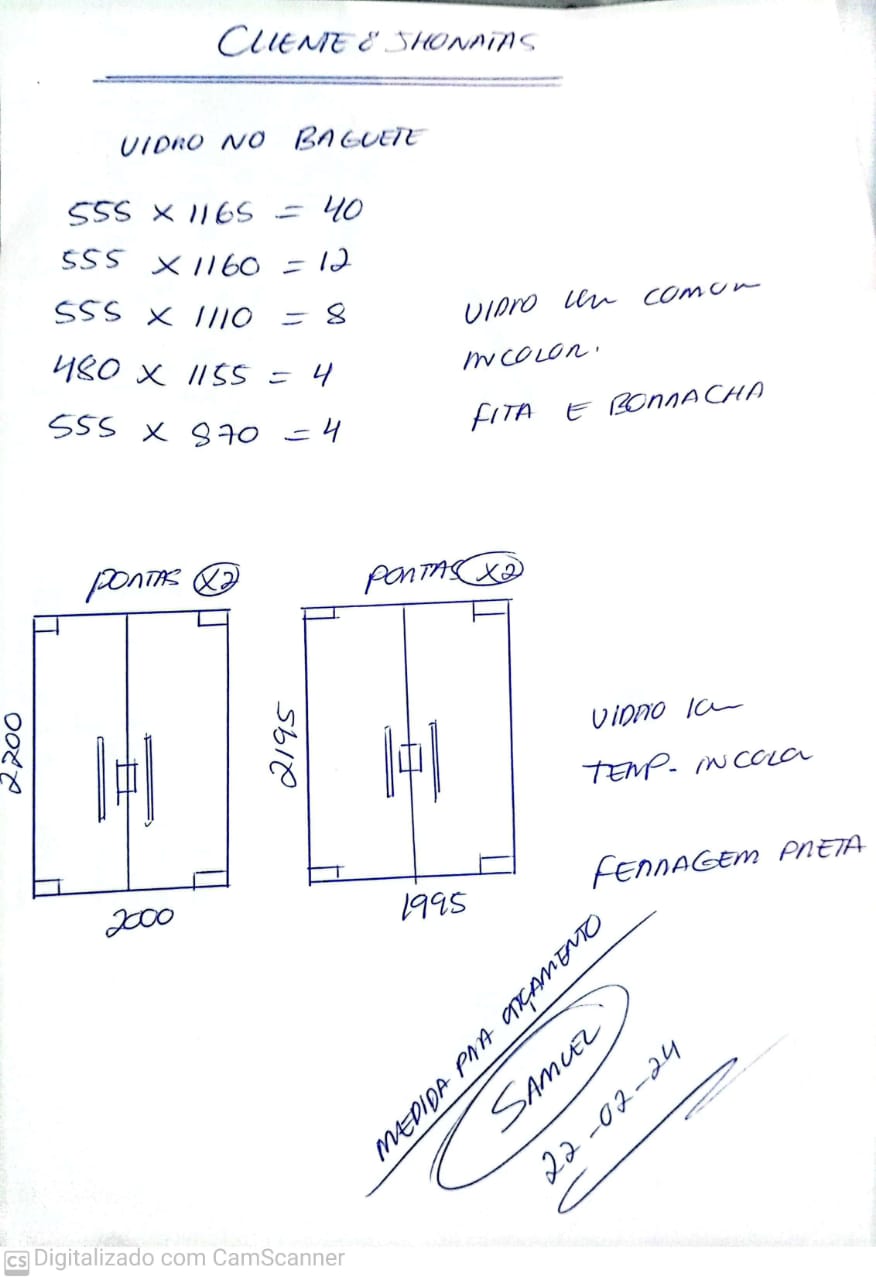 CLIENTE: JHONATAS
VIDRO NO BAGUETE
555 x 1165 = 40
555 x 1160 = 12
555 x 1110 = 8
480 x 1155 = 4
555 x 870 = 4
VIDRO COMUM
INCOLOR.
FITA E BORRACHA
PORTAS X2
2200
2000
PORTAS X2
2195
1995
VIDRO
TEMP- INCOLOR
FERRAGEM PRETA
MEDIDA PARA ORÇAMENTO
SAMUEL
22-02-24
CS Digitalizado com CamScanner